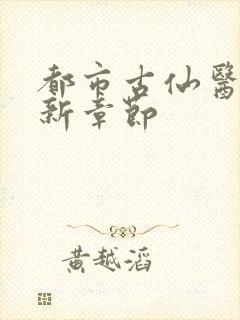 都市古仙醫
新章節
黃越滔